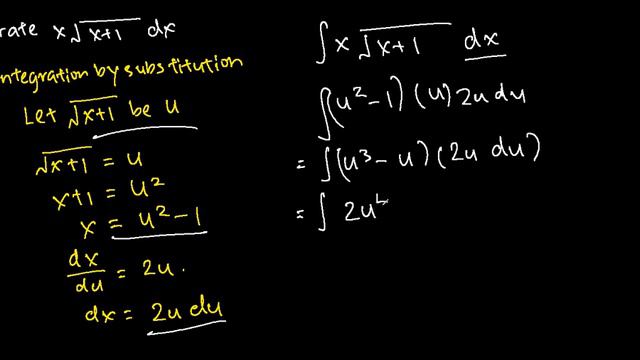 rate x√x+1 dx
ntegration by substitution
Let √x+1 be u
√x+1 = u
x+1 = u²
x = u²-1
dx/du = 2u.
dx = 2u du
∫x √x+1 dx
∫(u²-1) (u) 2u du
= ∫(u³-u) (2u du)
= ∫ 2u⁴